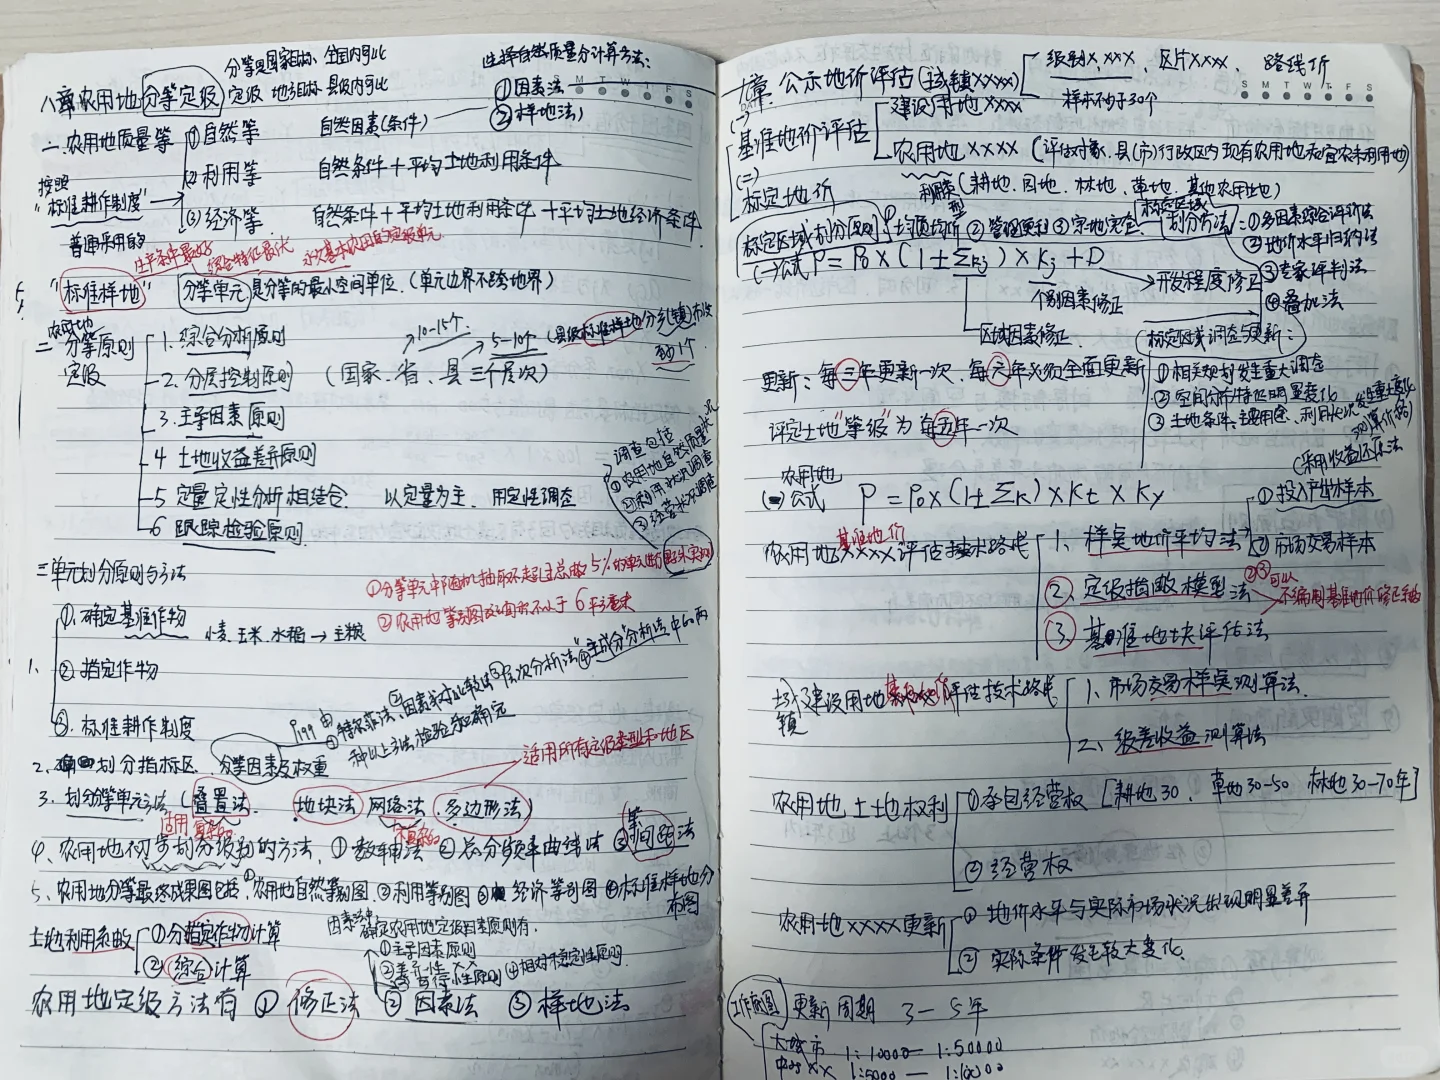 分等是国家目标、全国内可比
八章农用地分等定级 定级 地方目标 县级内可比
选择自然质量分计算方法：
①因素法
②样地法
一、农用地质量等 ①自然等 自然因素(条件)
② 利用等 自然条件＋平均土地利用条件
③ 经济等 自然条件＋平均土地利用条件＋平均土地经济条件
按照
"标准耕作制度"
普遍采用的
生产条件最好
"标准样地" 分等单元 是分等的最小空间单位.(单元边界不跨地界)
农用地
二 分等原则
定级
1. 综合分析原则
2. 分层控制原则 (国家、省、县 三个层次)
10-15个
5-10个 (县级标准样地分乡(镇)布设
至少1个
3. 主导因素原则
4 土地收益差异原则
5 定量定性分析相结合. 以定量为主. 用定性调查
6 跟踪检验原则
调查包括
①农用地自然质量状况
②利用状况调查
③经营状况调查
三单元划分原则与方法
①分等单元中随机抽取不超过总数5%的单元进行野外实测
②农用地等别图图斑面积不小于6平方毫米
1.
①. 确定基准作物
小麦、玉米、水稻 → 主粮
② 指定作物
③. 标准耕作制度
P199 由①特尔菲法、②因素成对比较法③层次分析法④主成分分析法中的两
种以上方法,检验后确定
2. 划分指标区. 分等因素及权重
3. 划分等单元方法 (叠置法. 地块法 网络法. 多边形法)
适用所有定级类型和地区
4、农用地初步划分级别的方法. ① 数轴法 ② 总分频率曲线法 ③等间距法
5、农用地分等最终成果图包括.①农用地自然等别图.②利用等别图 ③ 经济等别图 ④标准样地分
布图
土地利用系数 ①分指定作物计算
②(综合)计算
确定农用地定级因素原则有.
①主导因素原则
②差异性
④相对稳定性原则
农用地定级方法有 ① 修正法 ② 因素法 ③ 样地法
九章. 公示地价评估 (城镇XXXX) 级别X.XXX. 区片XXXX、 路线价
样本不少于30个
(一)
基准地价评估 建设用地XXXX
农用地XXXX (评估对象、县(市)行政区内现有农用地和宜农未利用地)
利用类型(耕地、园地、林地、草地、其他农用地)
(二)
标定地价
标定区域划分原则 ①均质均价 ②管理便利 ③宗地完整.
标定区域划分方法 =①多因素综合评价法
②地价水平归纳法
③专家评判法
④叠加法
(一)公式 P = P0 × (1±ΣKj) × Kj + D
→开发程度修正
个别因素修正
区域因素修正.
更新: 每三年更新一次、每六年必须全面更新
(标定区域调查与更新:
①相关规划发生重大调整
②空间分布特征明显变化
③土地条件、主要用途、利用状况发生重大变化
评定土地"等级"为每五年一次
测算价格)
(采用收益还原法
农用地
(二)公式 P = P0 × (1+ΣK) × Kt × Ky
基准地价
农用地XXXX评估技术路线
1、样点地价平均法
①投入产出样本
② 市场交易样本
②、定级指数模型法
②③可以
不编制基准地价修正系数
③、基准地块评估法
城镇建设用地基准地价评估技术路线
1、市场交易样点测算法.
2、级差收益测算法
农用地土地权利 ①承包经营权 [耕地30、草地30-50 林地30-70年]
② 经营权
农用地XXXX更新 ① 地价水平与实际市场状况出现明显差异
② 实际条件发生较大变化.
工作底图 更新周期 3—5年
大城市 1:10000— 1:50000
中小XX 1:5000 — 1:10000